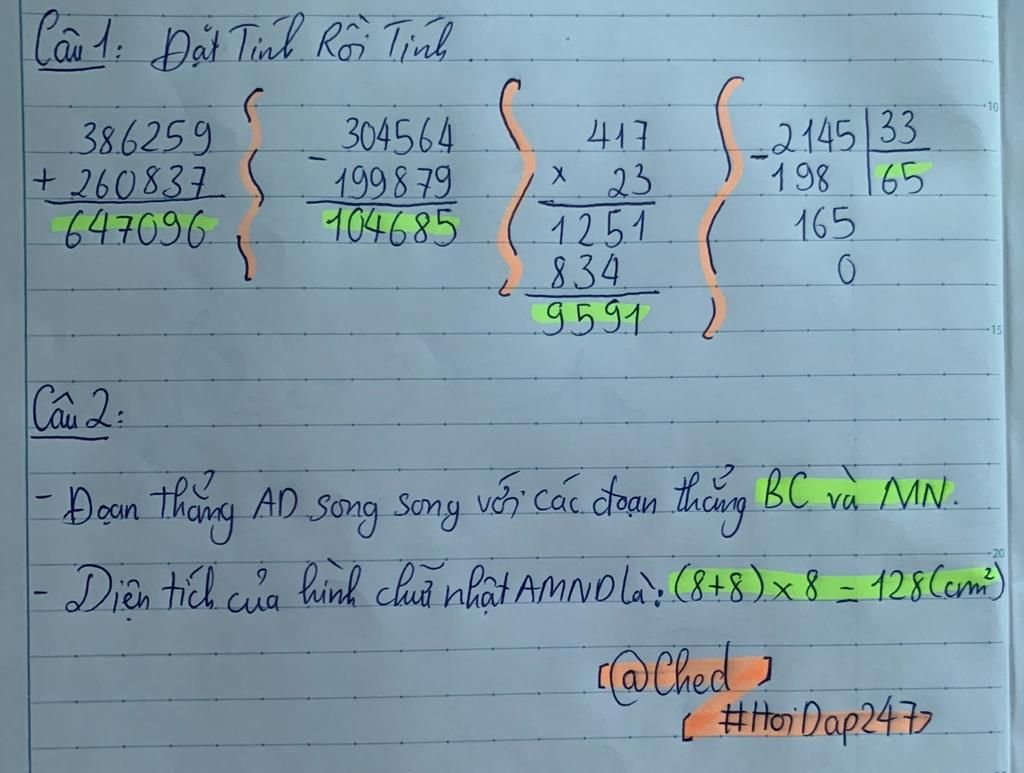 Câu 1: Đặt Tính Rồi Tính.
386259
+ 260837
647096
304564
- 199879
104685
417
x 23
1251
834
9591
- 2145 33
198 65
165
0
10
15
Câu 2:
- Đoạn thẳng AD song song với các đoạn thẳng BC và MN.
20
- Diện tích của hình chữ nhật AMND là: (8+8) x 8 = 128 (cm²)
[@Ched]
[#HoiDap247]